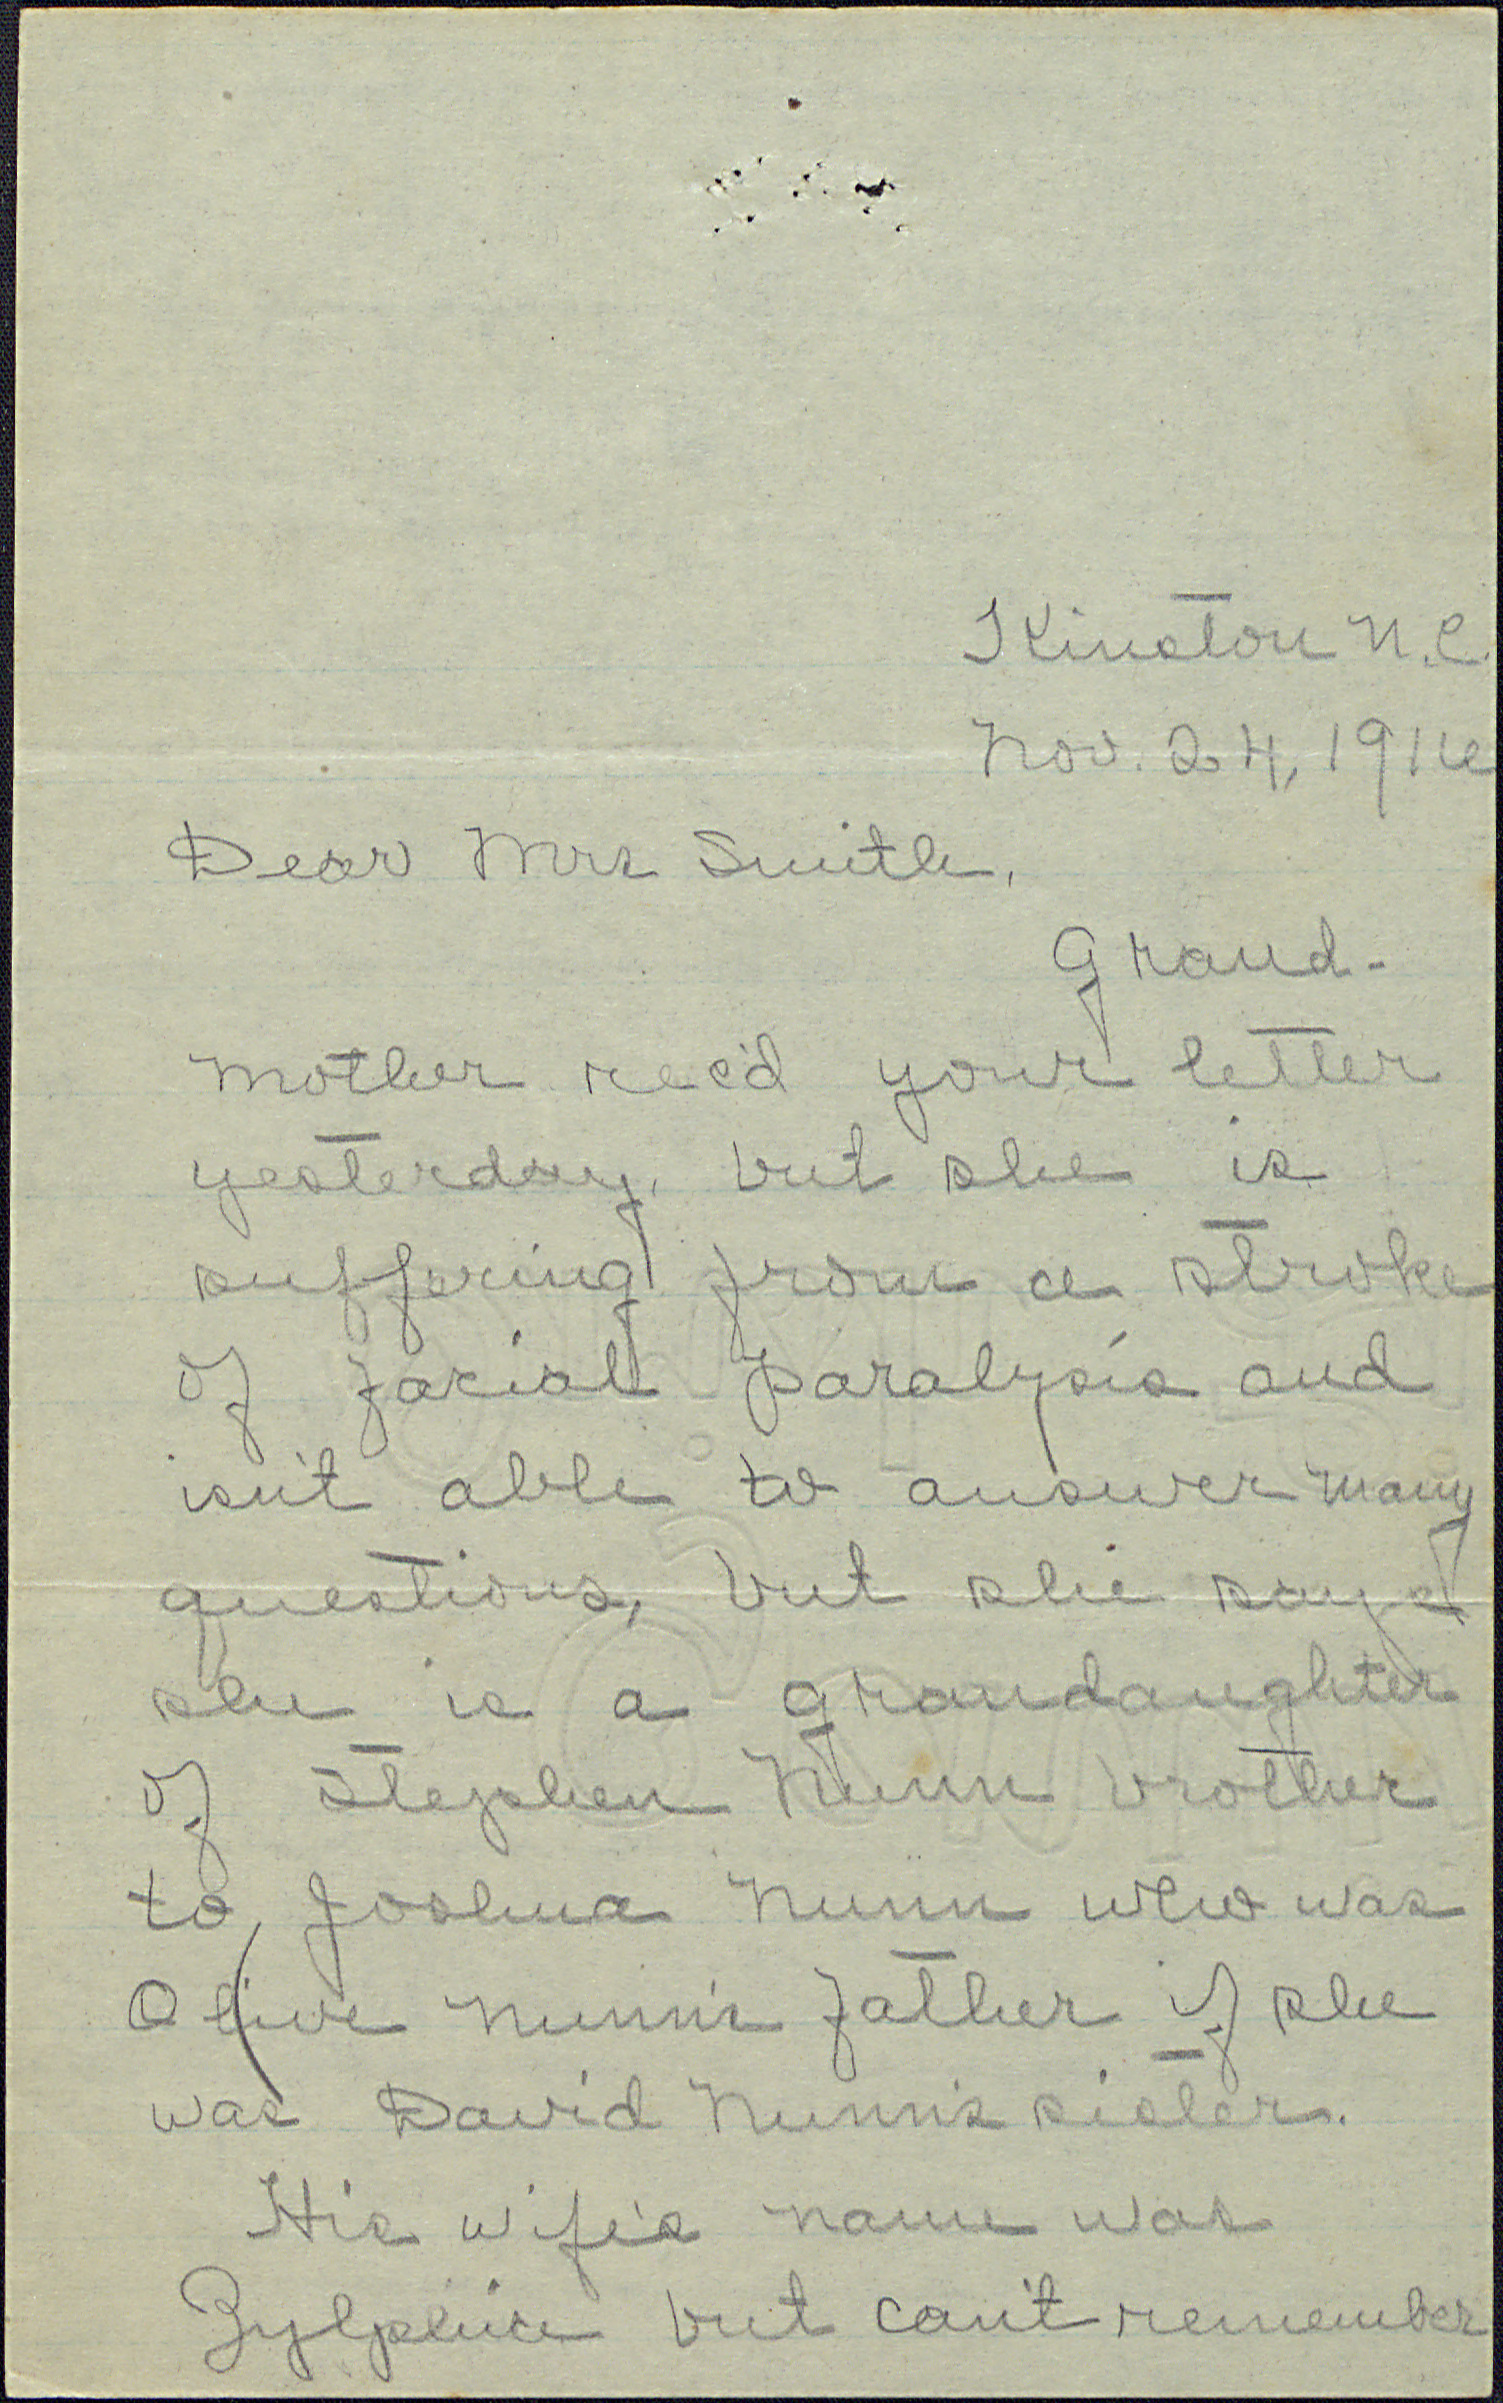 Kinston N.C.
Nov. 24, 1916
Dear Mrs Smith,
Grand-
mother rec'd your letter
yesterday, but she is
suffering from a stroke
of facial paralysis and
isn't able to answer many
questions, but she says
she is a grandaughter
of Stephen Nunn brother
to Joshua Nunn who was
Olive Nunn's father if she
was David Nunn's sister.
His wife's name was
Zylphia but can't remember